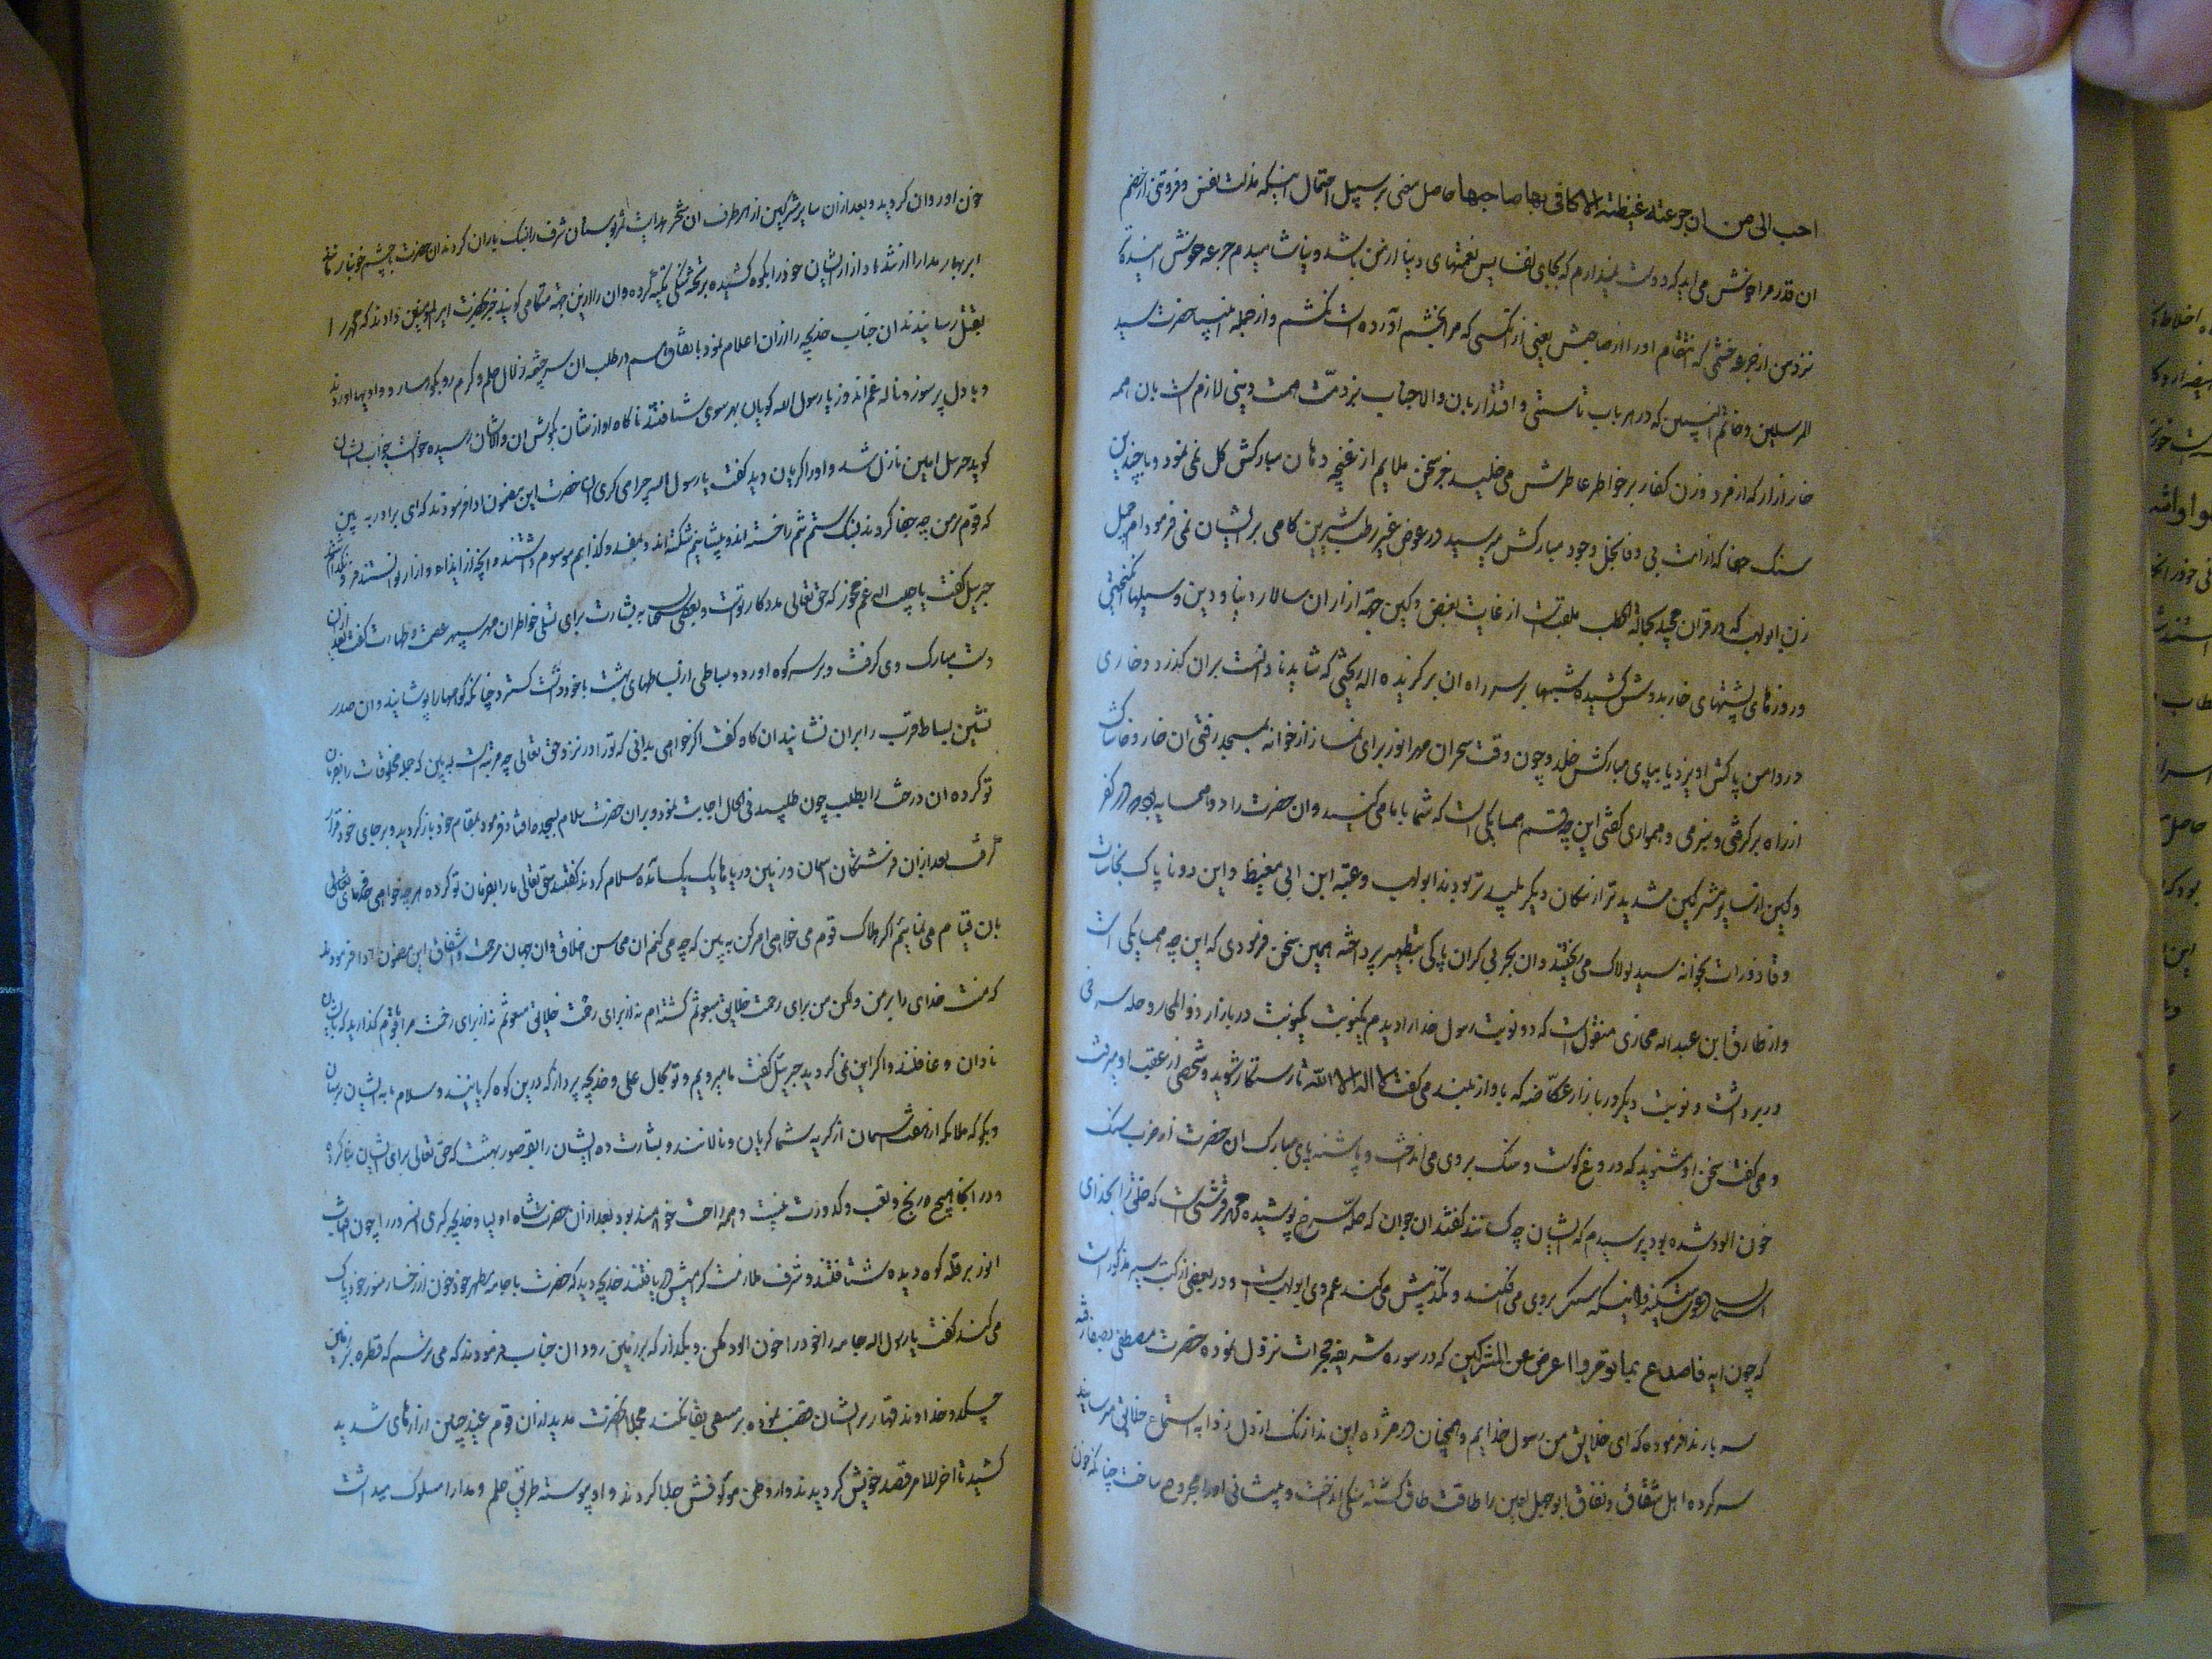 احب الی من ان جرعته غیظته الا کافی بها صاحبها حاصل معنی بر سبیل احتمال اینکه مذلت نفس و فروتنی از خصم
ان قدر مرا خوش می اید که دوست میدارم که بجای نفایس نعمتهای دنیا از من باشد و نیاشامیدم جرعه خوش ایند تر
نزد من از جرعه خشمی که انتقام او را از صاحبش یعنی از انکسی که مرا بخشم آورده است نکشم و از جمله انبیا حضرت سید
المرسلین و خاتم النبیین که در هر باب تاسی و اقتدا بان والا جناب بر ذمت همت دینی لازم است بان همه
خار ازار که از فرد و زن کفار بر خواطر عاطرش می خلید جز سخن ملایم از غنچه دهان مبارکش گل نمی نمود و با چندین
سنک جفا که از امت بی وفا بنخل وجود مبارکش میرسید در عوض غیر رطب شیرین کامی بر ایشان نمی فرمود ام جمیل
زن ابولهب که در قران مجید بحمالة الحطب ملقبست از غایت بغض و کین جهة ازار ان سالار دنیا و دین
و روزها پشتهای خار بدوش کشیده شبها بر سر راه ان برگزیده اله ریختی که شاید نادانسته بران گذرد و خاری
در دامن پاکش اویزد یا بپای مبارکش خلد و چون وقت سحر ان مهر انور برای نماز از خوانه بمسجد رفتی ان خار و خاشاک
از راه بر گرفتی و بنرمی و همواری گفتی این چه قسم همسایگی است که شما با ما می کنید و ان حضرت را دو همسایه بود در کفر
و کین از سایر مشرکین شدید تر از سکان دیگر پلید تر بودند ابولهب و عقبه ابن ابی معیط و این دو ناپاک نجاسات
و قاذورات بخوانه سید لولاک می ریختند و ان بحر بی کران پاکی بتطهیر پرداخته همین سخن فرمودی که این چه همسایگی است
و از طارق ابن عبد اله محاربی منقول است که دو نوبت رسول خدا را دیدم یکنوبت در بازار ذو المجاز و حله سرخی
در بر داشت و نوبت دیگر در بازار عکاضه که باواز بلند می گفت لا اله الا الله تا رستگار شوید و شخصی از عقب او میرفت
و می گفت سخن او مشنوید که دروغ گوست و سنک بر وی می انداخت و پاشنه پای مبارک ان حضرت از ضرب سنک
خون الود شده بود پرسیدم که ایشان چه کسانند گفتند ان جوان که حله سرخ پوشیده محمد قرشی است که خلق را بخدای
اسمان دعوت میکند و اینکه سنک بر وی می افکند و تکذیبش می کند عم وی ابولهب است و در بعضی از کتب سیر مذکور است
که چون ایه فاصدع بما تومر و اعرض عن المشرکین که در سوره شریفه حجر است نزول نموده حضرت مصطفی بصفا رفته
سه بار ندا فرموده که ای خلایق من رسول خدایم و همچنان در مروه این ندا زنک از دل زدا به استماع خلایق میرسانید
سر کرده اهل شقاق و نفاق ابو جهل لعین را طاقت طاق گشته سنگی انداخت و پیشانی او را مجروح ساخت چنانکه خون
خون او روان گردید و بعد از ان سایر مشرکین از هر طرف ان شجر هدایت ثمر بوستان شرف را سنک باران کردند ان حضرت بچشم خونبار مانند
ابر بهار مدارا از شدت ازار ایشان خود را بکوه کشیده بر تخته سنگی تکیه کرده و ان را ازین جهة متکا می گویند خبر بحضرت امیر المومنین دادند که محمد را
بقتل رسانیدند ان جناب خدیجه را از ان اعلام نمود باتفاق هم در طلب ان سر چشمه زلال حلم و کرم رو بکوهسار و وادیها اوردند
و با دل پر سوز و ناله غم اندوز یا رسول الله گویان بهر سوی شتافتند ناگاه اواز شان بگوش ان والاشان رسیده خواست جواب ایشان
گوید جبرییل امین نازل شد و او را گریان دید گفت یا رسول الله چرا می گریی ان حضرت این مضمون ادا فرمودند که ای برادر به بین
که قوم بر من چه جفا کردند بسنک ستم تنم را خسته اند و پیشانیم شکسته اند
جبرییل گفت یا حبیب اله غم مخور که حق تعالی مددکار توست
دست مبارک وی گرفت و بر سر کوه اورد و بساطی از بساطهای بهشت با خود داشت گسترد چنانکه کوهها را پوشانید و ان صدر
نشین بساط قرب را بر ان نشانید ان گاه گفت اگر خواهی بدانی که تو را در نزد حق تعالی چه مرتبه است به بین که جمله مخلوقات را بفرمان
تو کرده ان درخت را بطلب چون طلبید فی الحال اجابت نمود و بر ان حضرت سلام بسجده افتاد فرمود بمقام خود باز گردید و بر جای خود قرار
گرفت بعد از ان فرشتگان اسمان و زمین و دریاها یک یک امده سلام کردند گفتند حق تعالی ما را بفرمان تو کرده هر چه خواهی بفرمای تا
بان قیام می نمائیم اگر هلاک قوم می خواهی امر کن به بین که چه می کنم ان محاسن اخلاق و ان جهان مرحمت و اشفاق این مضمون ادا فرمودند
که منت خدای را بر من ولکن من برای رحمت خلایق مبعوثم
نادان و غافلند و اگر این نمی گردید جبرییل گفت ما میرویم و تو بحال علی و خدیجه پرداز که درین کوه گریانند و سلام ما به ایشان برسان
و بگو که ملایکه از هفت اسمان از گریه شما گریان و نالانند و بشارت ده ایشان را بقصور بهشت که حق تعالی برای ایشان بنا کرده
و در انجا هیچ رنج و تعب و کدورت نیست و همه راحت خواهند بود بعد از ان حضرت شاه اولیا و خدیجه کبری ان سرور را چون افتاب
انور بر قله کوه دیده شتافتند و شرف ملازمت کرامیش دریافتند خدیجه دید که حضرت با جامه مطهر خود خون از رخسار منور خود پاک
می کند گفت یا رسول اله جامه را خود را خون الود مکن و بگذار که بر زمین رود ان جناب فرمودند که می ترسم که قطره بر زمین
چکد و خداوند قهار بر ایشان غضب نموده بر کسی بقا نکند مجملا ان حضرت مدید از ان قوم عنید چنین ازارهای شدید
کشید تا اخر الامر قصد خونش گردیدند و از وطن مالوفش جلا کردند و او پیوسته طریق حلم و مدارا مسلوک میداشت